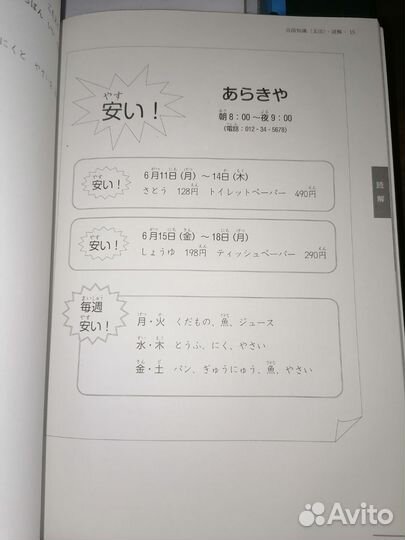 言語知識(文法)・読解・15
読解
安い!
あらきや
朝8:00~夜9:00
(電話:012-34-5678)
安い!
6月11日(月)~14日(木)
さとう 128円 トイレットペーパー 490円
安い!
6月15日(金)~18日(月)
しょうゆ 198円 ティッシュペーパー 290円
毎週
安い!
月・火 くだもの、魚、ジュース
水・木 とうふ、にく、やさい
金・土 パン、ぎゅうにゅう、魚、やさい
Avito